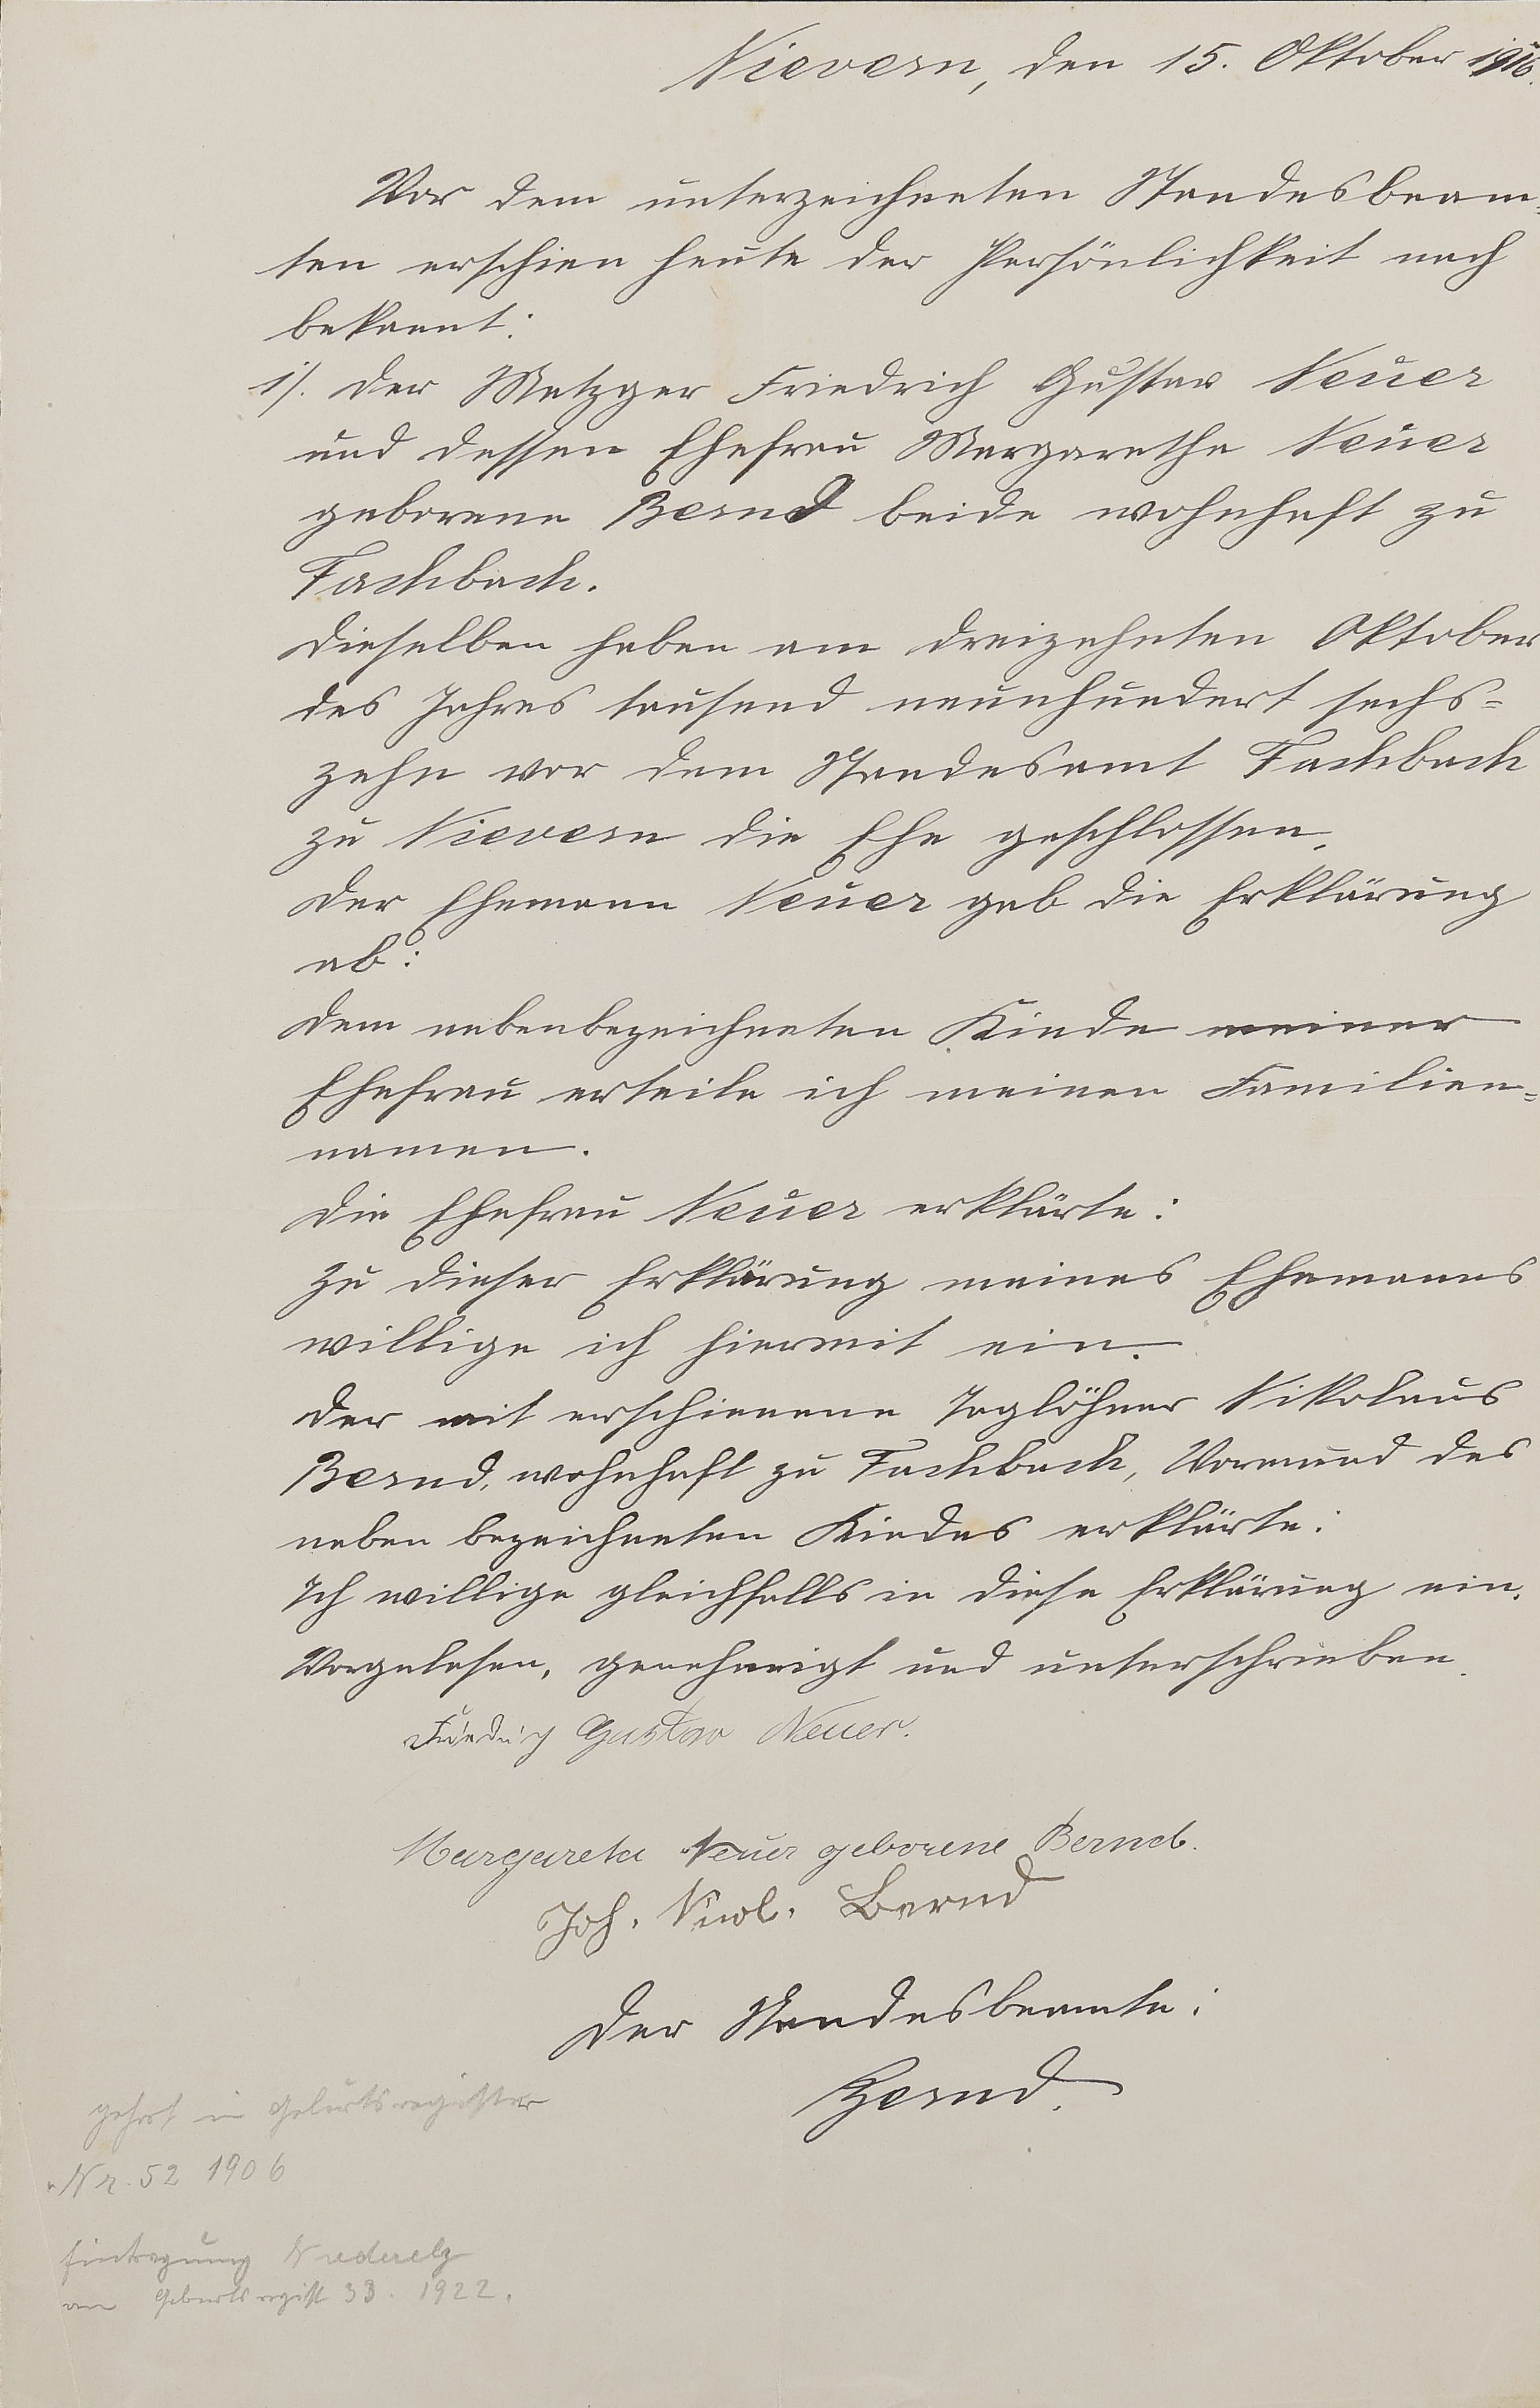 Nievern, den 15. Oktober 1916.
Vor dem unterzeichneten Standesbeam=
ten erschien heute der Persönlichkeit nach
bekannt:
1/. der Metzger Friedrich Gustav Neuer
und dessen Ehefrau Margarethe Neuer
geborene Bernd beide wohnhaft zu
Fachbach.
Dieselben haben am dreizehnten Oktober
des Jahres tausend neunhundert sechs=
zehn vor dem Standesamt Fachbach
zu Nievern die Ehe geschlossen.
Der Ehemann Neuer gab die Erklärung
ab:
Dem nebenbezeichneten Kinde meiner
Ehefrau erteile ich meinen Familien=
namen.
Die Ehefrau Neuer erklärte:
Zu dieser Erklärung meines Ehemannes
willige ich hiermit ein.
Der mit erschienene Taglöhner Nikolaus
Bernd, wohnhaft zu Fachbach, Vormund des
neben bezeichneten Kindes erklärte:
Ich willige gleichfalls in diese Erklärung ein.
Vorgelesen, genehmigt und unterschrieben.
Friedrich Gustav Neuer.
Margareta Neuer geborene Bernd.
Joh. Nicol. Bernd
Der Standesbeamte:
gehört in Geburtsregister
Nr. 52 1906
Eintragung
am Geburtsregist 33. 1922.